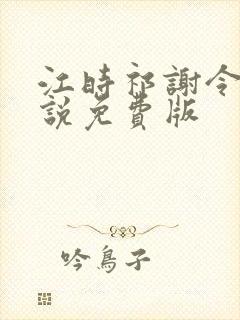 江時祁謝令
說免費版
吟鳥子